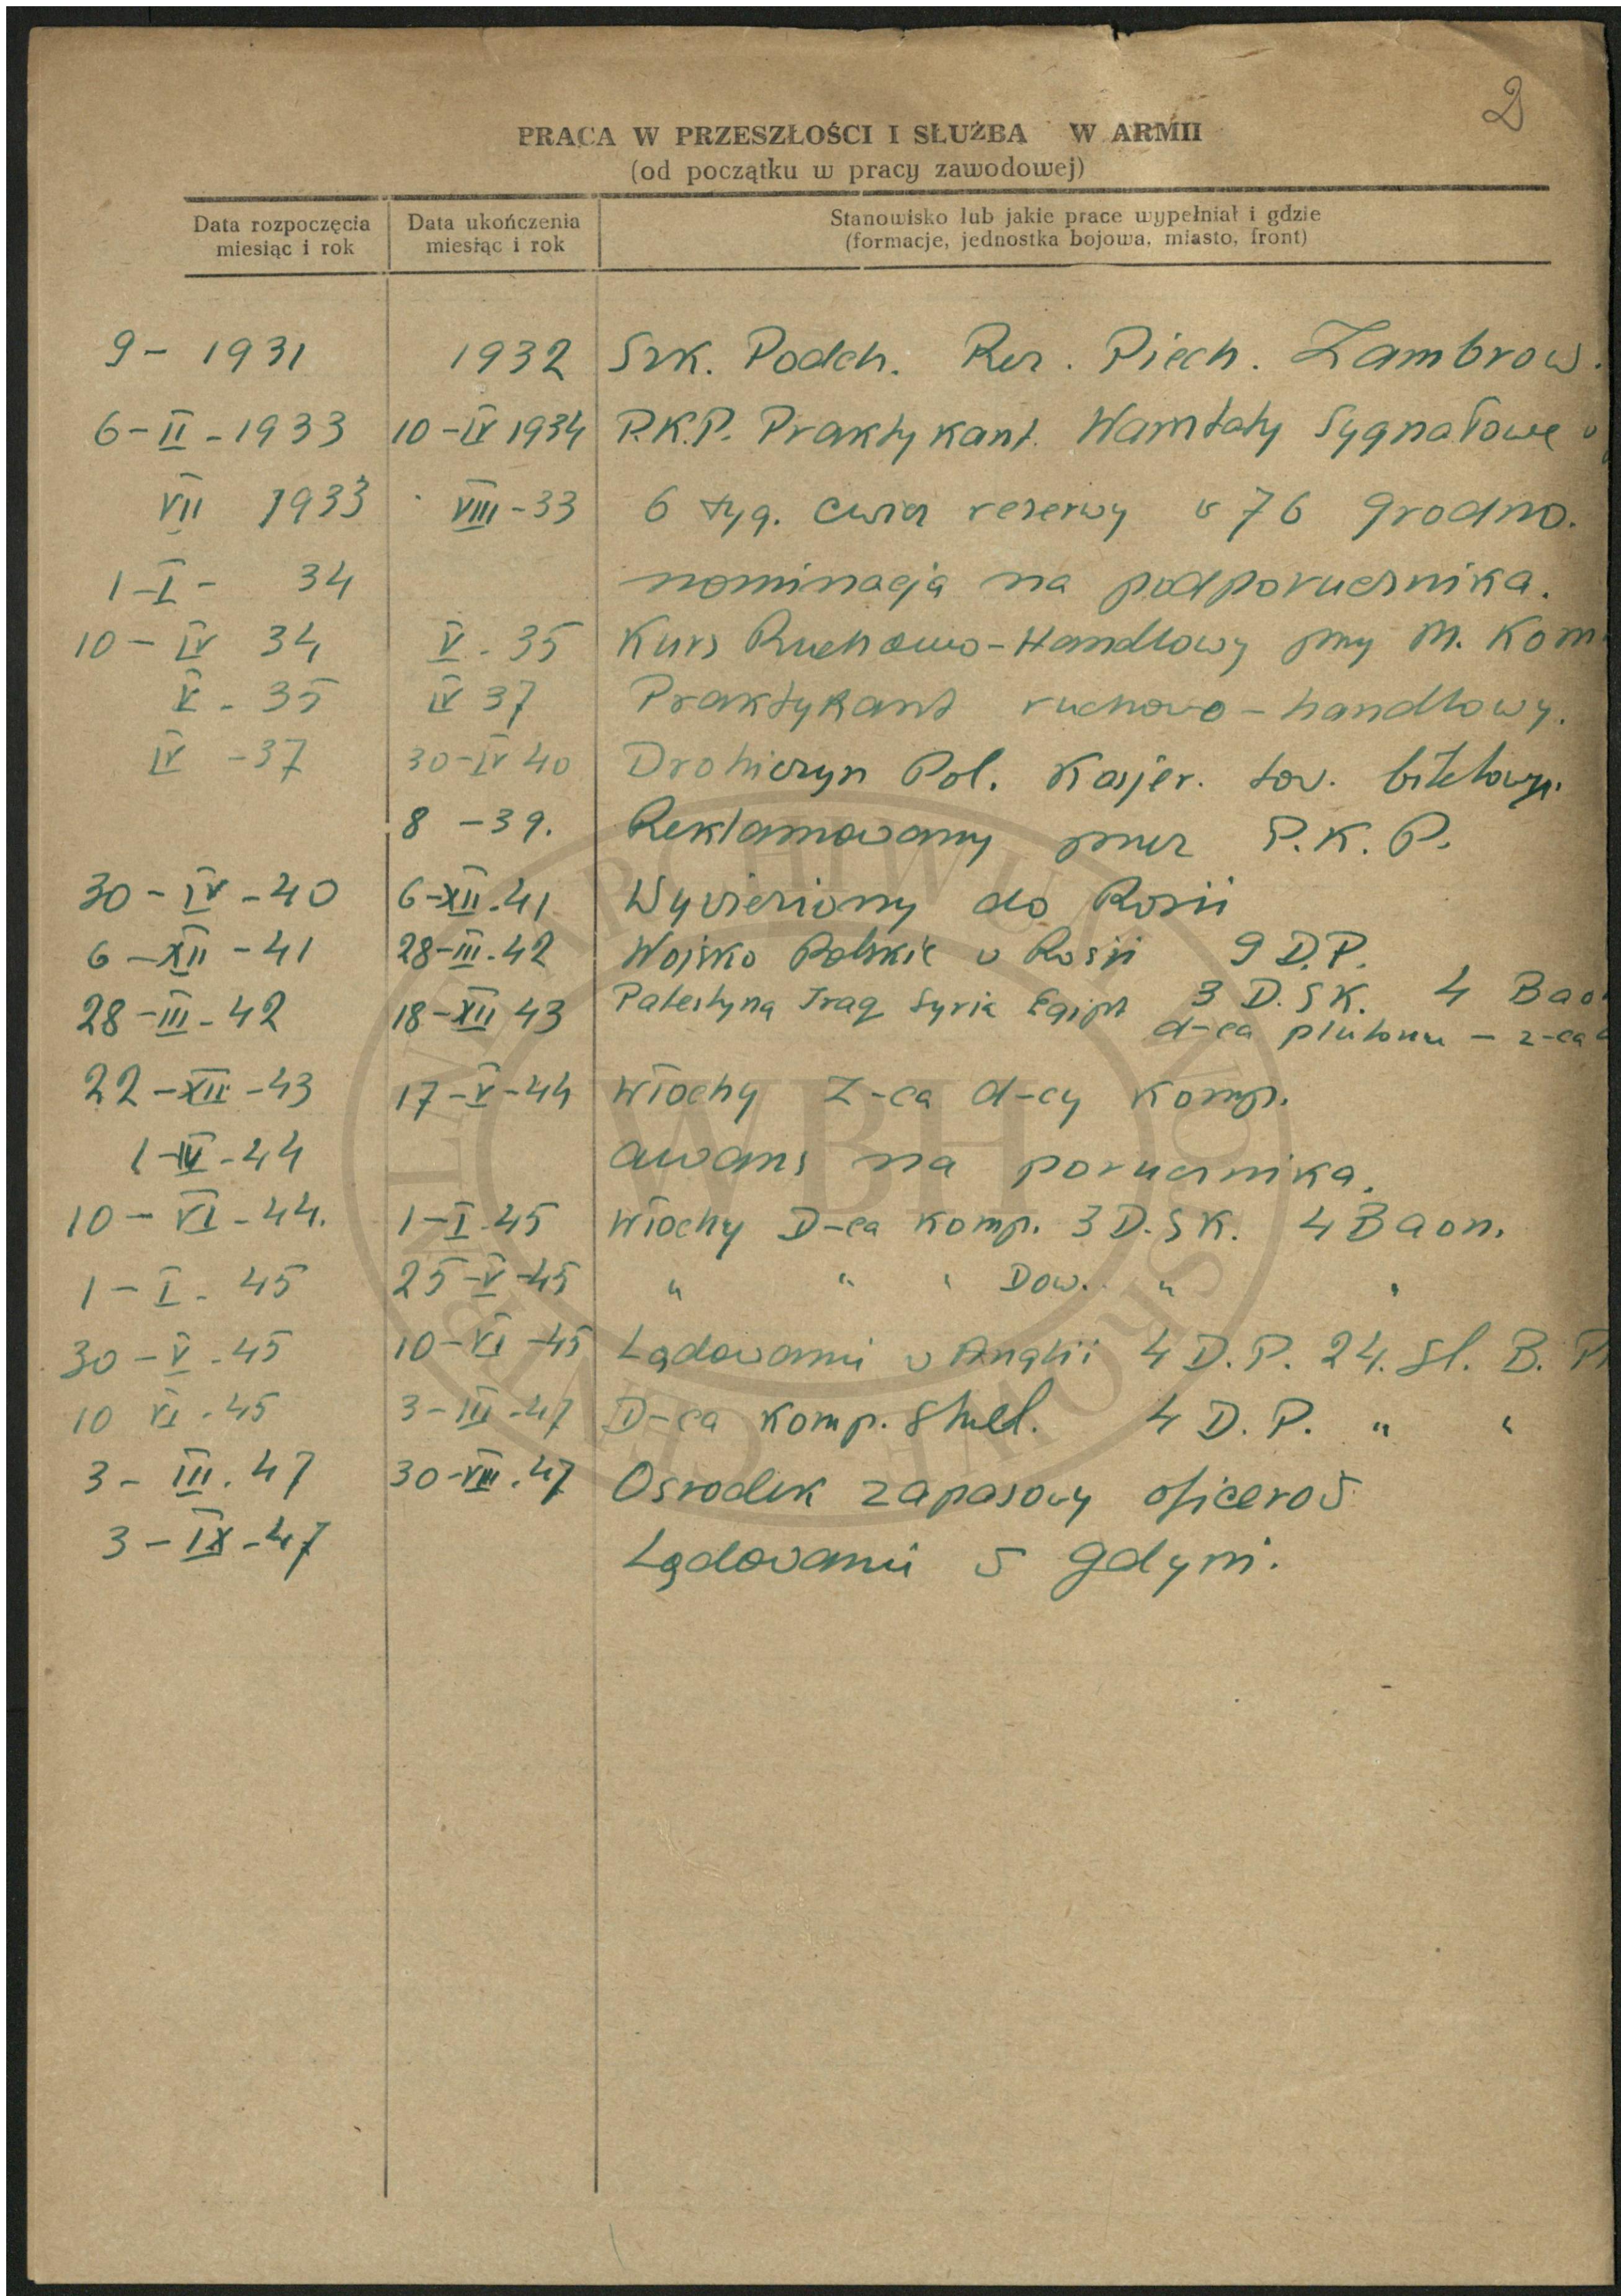 2
PRACA W PRZESZŁOŚCI I SŁUŻBA W ARMII
(od początku w pracy zawodowej)
Data rozpoczęcia miesiąc i rok Data ukończenia miesiąc i rok Stanowisko lub jakie prace wypełniał i gdzie (formacje, jednostka bojowa, miasto, front)
9 - 1931 1932 Szk. Podch. Rez. Piech. Zambrow.
6-II-1933 10-IV 1934 P.K.P. Praktykant. Warsztaty Sygnałowe
VII 1933 VIII-33 6 tyg. cwicz rezerwy w 76 Grodno.
1-I- 34 nominacja na podporucznika.
10-IV 34 V-35 Kurs Ruchowo-Handlowy przy M. Kom.
V-35 IV 37 Praktykant ruchowo-handlowy.
IV-37 30-IV 40 Drohiczyn Pol. Kasjer. tow. biletowy.
8-39. Reklamowany przez P.K.P.
30-IV-40 6-XII-41 Wywieziony do Rosii
6-XII-41 28-III-42 Wojsko Polskie w Rosii 9 D.P.
28-III-42 18-XII 43 Palestyna Iraq Syria Egipt 3 D.SK. 4 Baon
d-ca plutonu - z-ca
22-XII-43 17-V-44 Włochy Z-ca d-cy Komp.
1-IV-44 awans na porucznika.
10-VI-44. 1-I-45 Włochy D-ca Komp. 3 D.SK. 4 Baon.
1-I-45 25-V-45 " " " Dow. " "
30-V-45 10-VI-45 Lądowanie w Anglii 4 D.P. 24. Sl. B.
10 VI-45 3-III-47 D-ca Komp. Strzel. 4 D.P. " "
3-III.47 30-VIII.47 Osrodek zapasowy oficerow
3-IX-47 Lądowanie w Gdyni.
ARCHIWUM
WBH